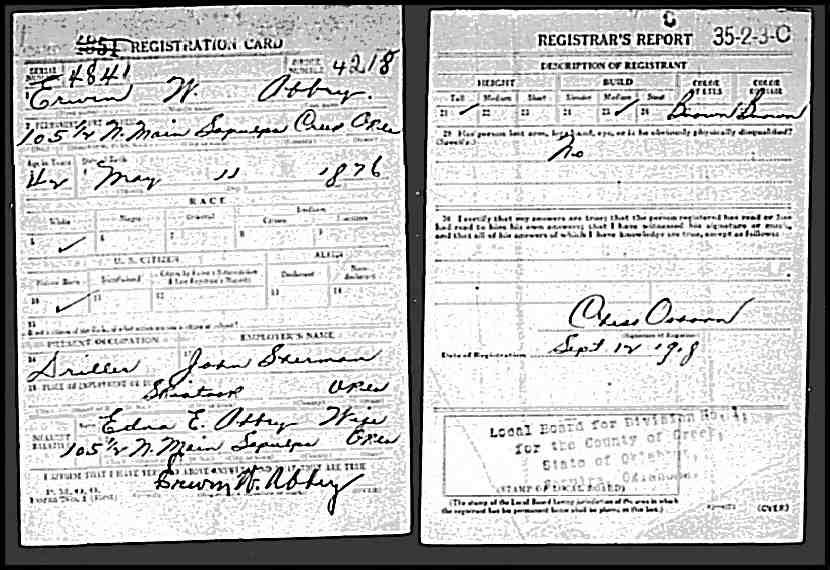 4851 REGISTRATION CARD
SERIAL NUMBER 4841
ORDER NUMBER 4218
Erwin W. Abbey.
105 1/2 N. Main Sapulpa Creek Okla
Age in Years Date of Birth
42 May 11 1876
RACE
White Negro Oriental Indian
Citizen
5 6 7 8 9
U. S. CITIZEN ALIEN
Native Born Naturalized Declarant Non-declarant
10 11 12 13 14
15
PRESENT OCCUPATION EMPLOYER'S NAME
16
Driller John Sherman
18 PLACE OF EMPLOYMENT OR BUSINESS
Skiatook Okla
NEAREST RELATIVE
Edna E. Abbey Wife
105 1/2 N. Main Sapulpa Okla
I AFFIRM THAT I HAVE VERIFIED ABOVE ANSWERS AND THAT THEY ARE TRUE
P. M. G. O.
Form No. 1 (Red)
Erwin W. Abbey
(OVER)
C
REGISTRAR'S REPORT 35-2-3-C
DESCRIPTION OF REGISTRANT
HEIGHT BUILD COLOR OF EYES COLOR OF HAIR
Tall Medium Short Slender Medium Stout
21 22 23 24 25 26 Brown Brown
29 Has person lost arm, leg, hand, eye, or is he obviously physically disqualified?
(Specify.)
No
30 I certify that my answers are true; that the person registered has read or has
had read to him his own answers; that I have witnessed his signature or mark,
and that all of his answers of which I have knowledge are true, except as follows:
Chess Osborn
(Signature of Registrar)
Date of Registration Sept 12 1918
Local Board for Division No. 1,
for the County of Creek,
State of Oklahoma,
Sapulpa, Oklahoma.
(STAMP OF LOCAL BOARD)
(The stamp of the Local Board having jurisdiction of the area in which
the registrant has his permanent home shall be placed in this box.)
(OVER)